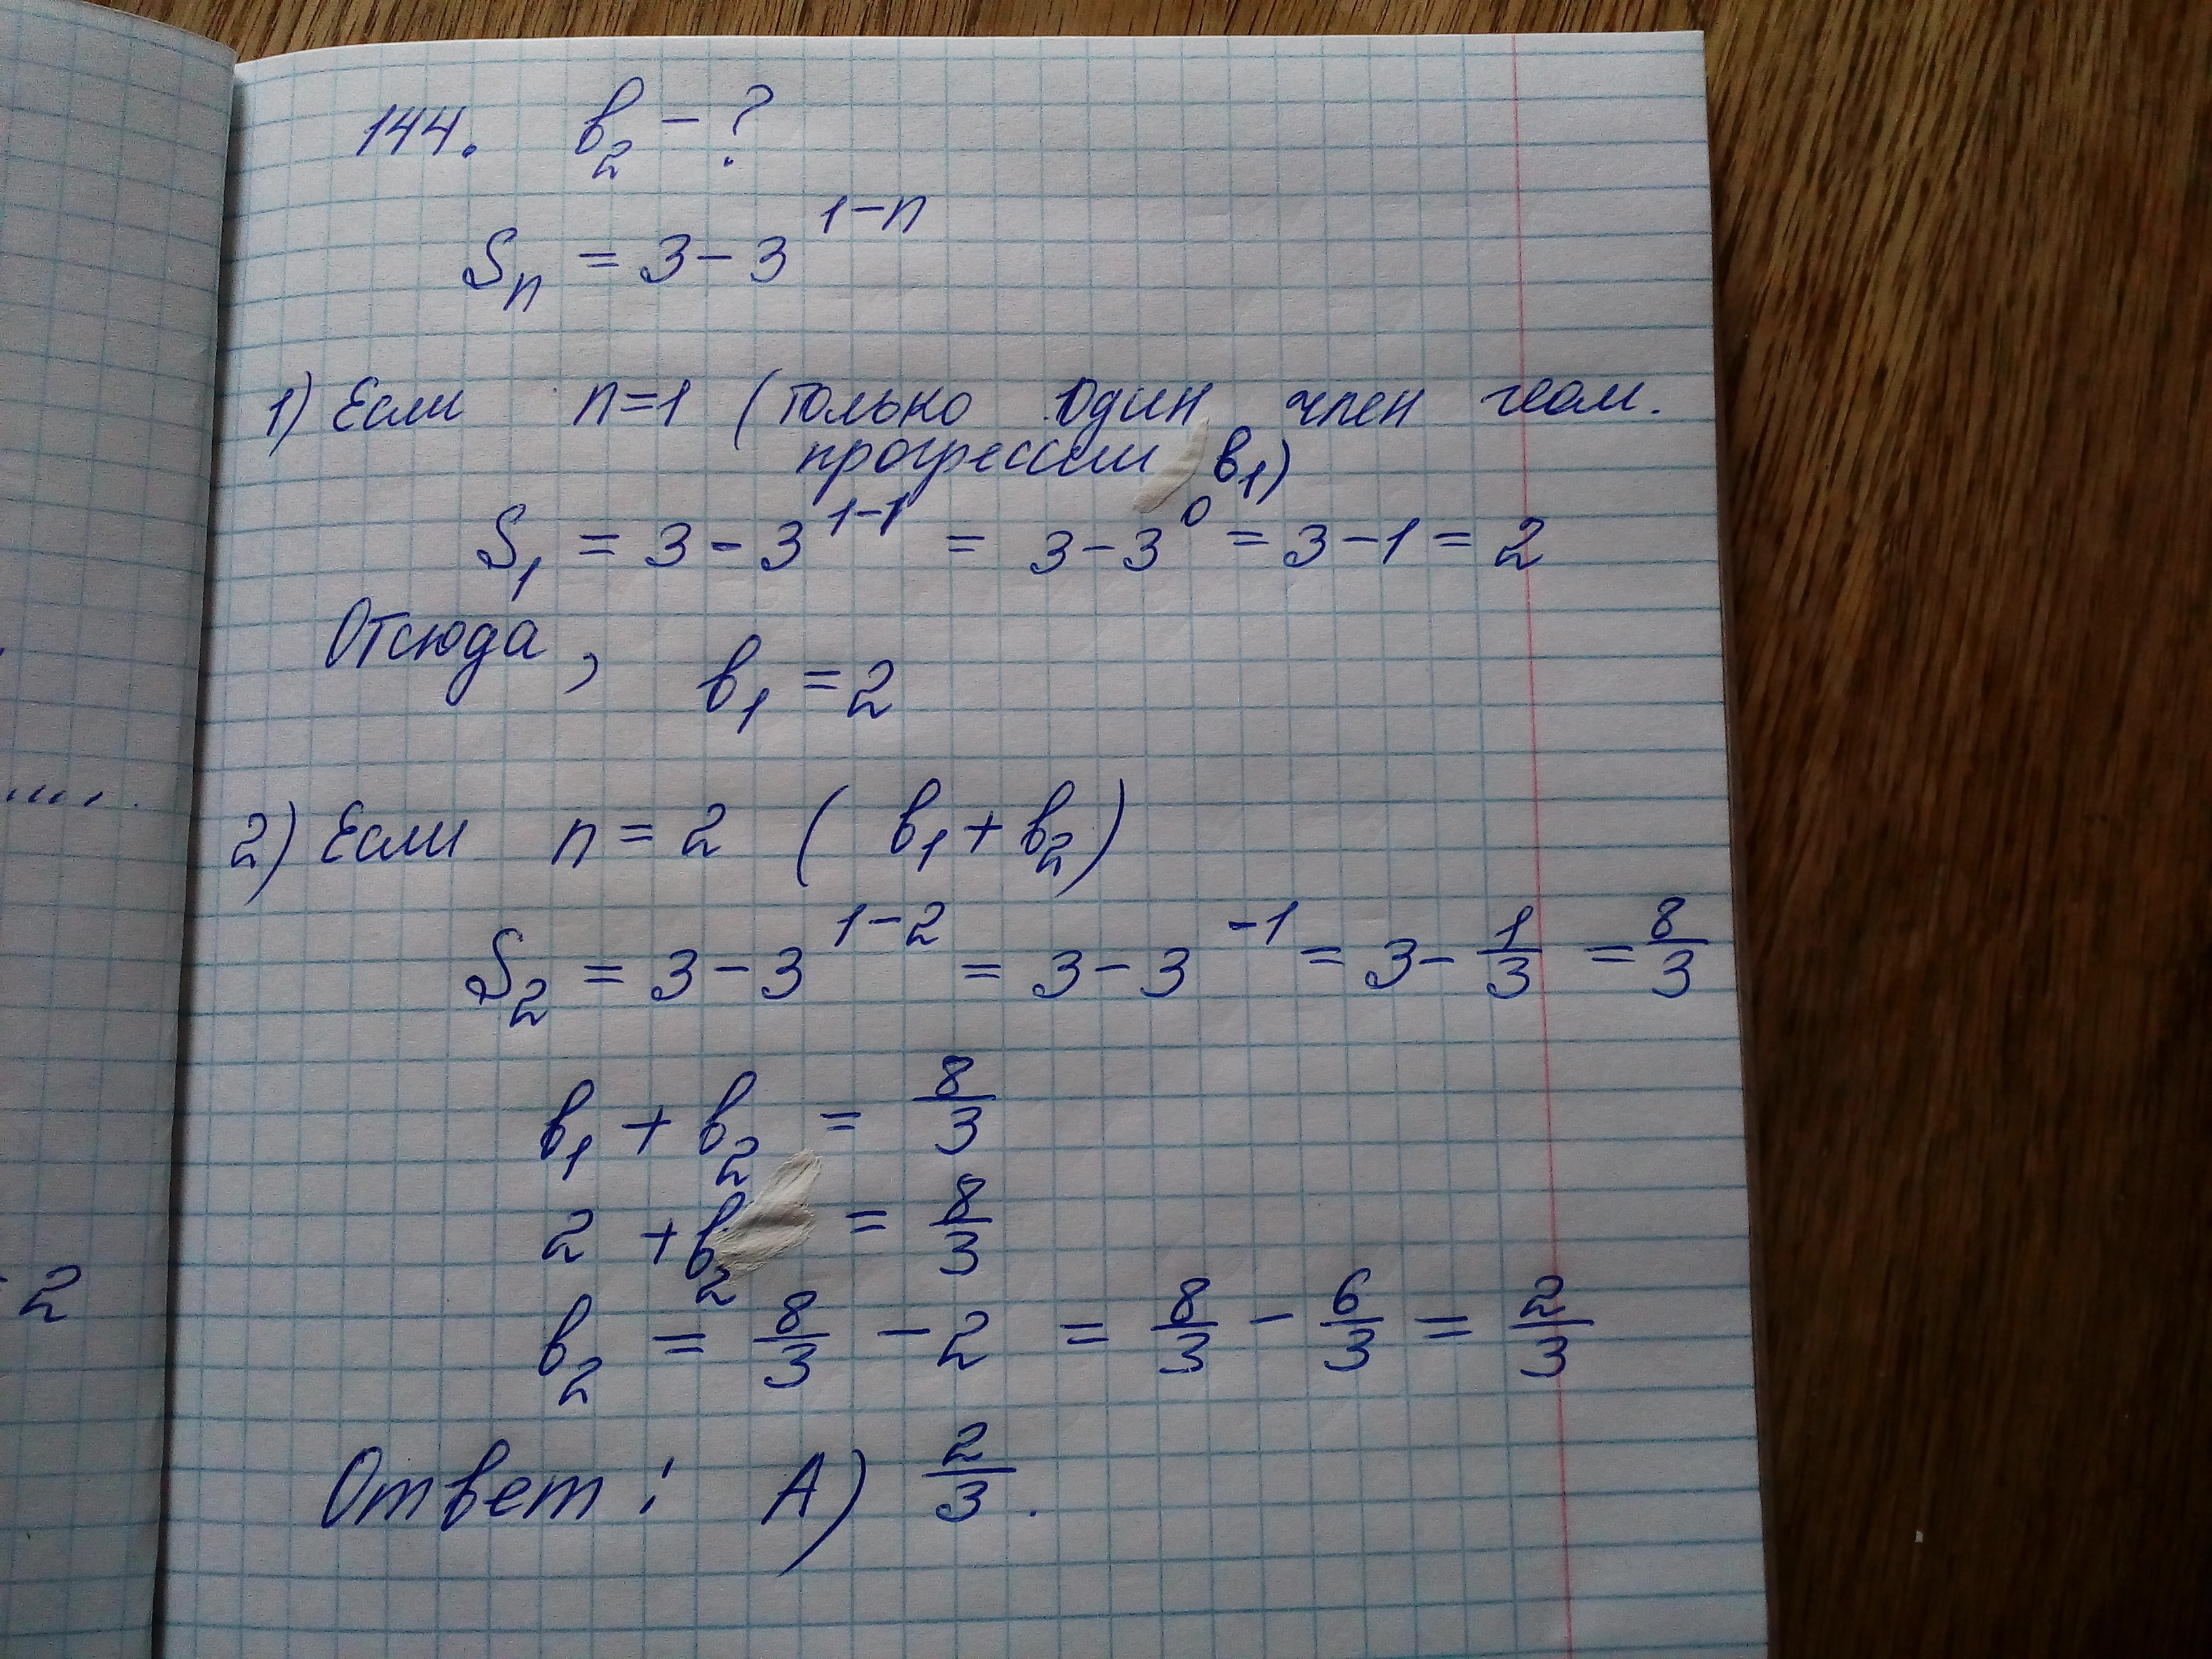 144. в₂ - ?
Sₙ = 3 - 3¹⁻ⁿ
1) Если n=1 (только один член геом.
прогрессии в₁)
S₁ = 3 - 3¹⁻¹ = 3 - 3⁰ = 3 - 1 = 2
Отсюда, в₁ = 2
2) Если n = 2 ( в₁ + в₂)
S₂ = 3 - 3¹⁻² = 3 - 3⁻¹ = 3 - 1/3 = 8/3
в₁ + в₂ = 8/3
2 + в₂ = 8/3
= 2
в₂ = 8/3 - 2 = 8/3 - 6/3 = 2/3
Ответ: А) 2/3.